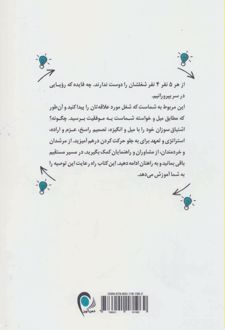 از هر ۵ نفر ۴ نفر شغلشان را دوست ندارند. چه فایده که رؤیایی
در سر بپرورانیم.
این مربوط به شماست که شغل مورد علاقه‌تان را پیدا کنید و آن‌طور
که مطابق میل و خواسته شماست به موفقیت برسید. چگونه؟
اشتیاق سوزان خود را با میل و انگیزه، تصمیم راسخ، عزم و اراده،
استراتژی و تعهد برای به جلو حرکت کردن درهم آمیزید. از مرشدان
و خردمندان، از مشاوران و راهنمایان کمک بگیرید. در مسیر مستقیم
باقی بمانید و به راهتان ادامه دهید. این کتاب راه رعایت این توصیه را
به شما آموزش می‌دهد.